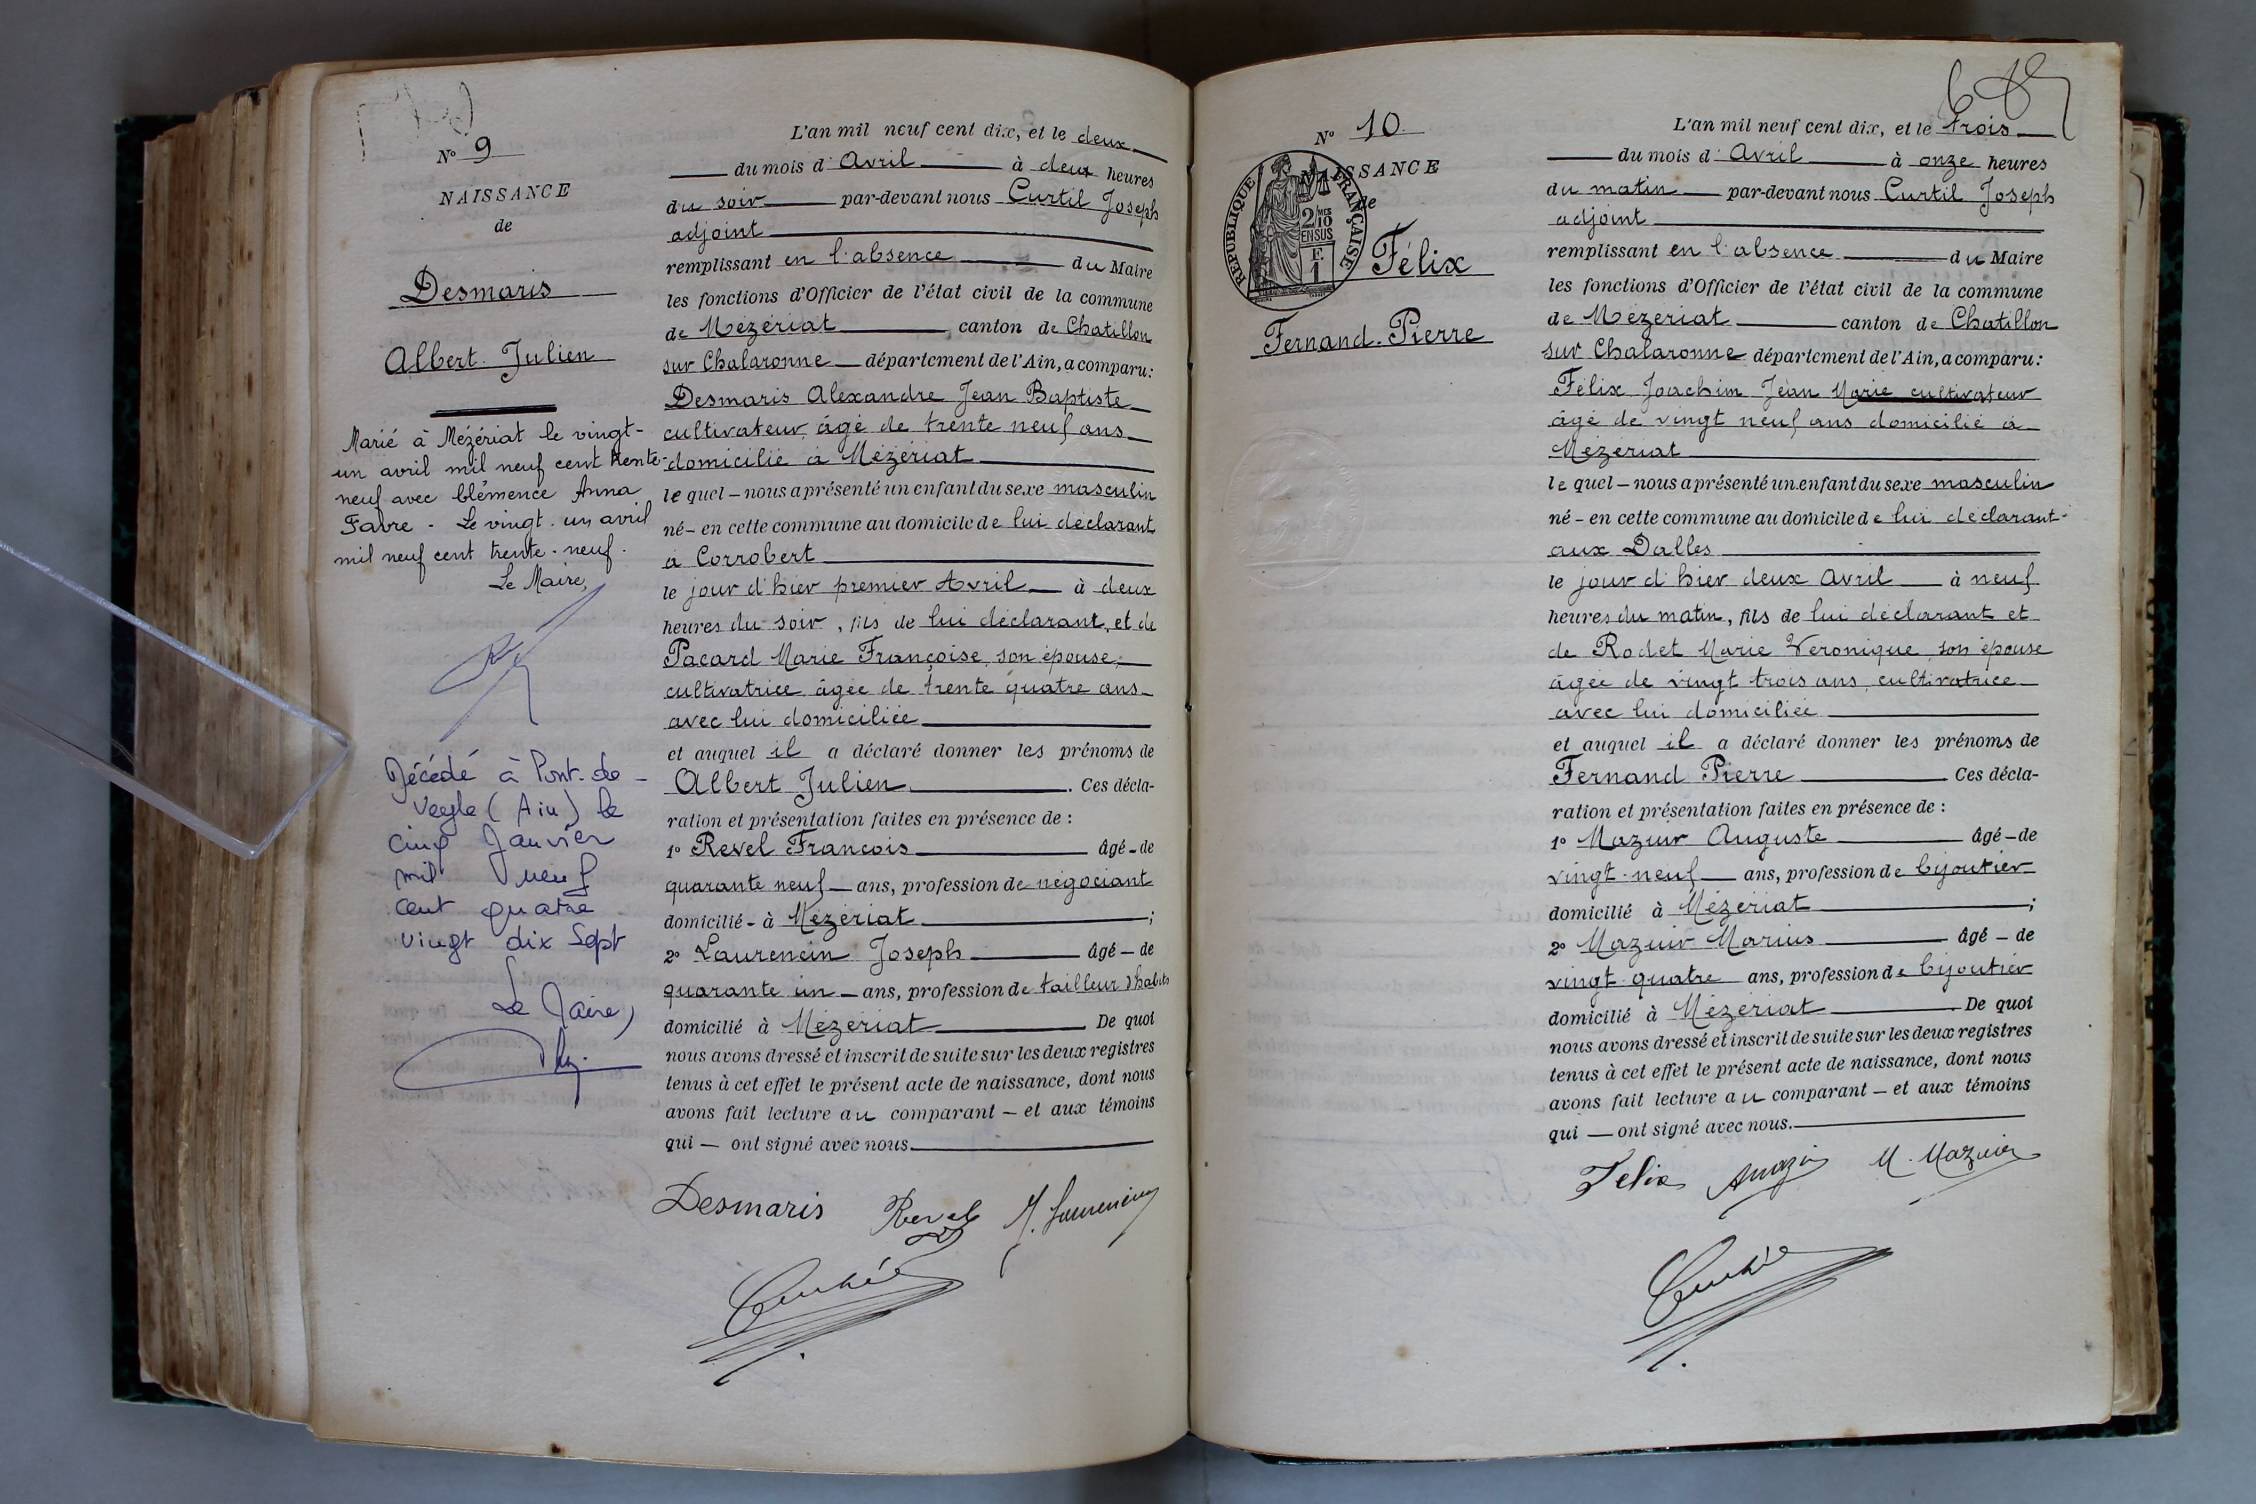 N° 9
NAISSANCE
de
Desmaris
Albert Julien
Marié à Mézériat le vingt-
un avril mil neuf cent trente-
neuf avec Clémence Anna
Favre - Le vingt-un avril
mil neuf cent trente-neuf.
Le Maire,
Décédé à Pont-de-
Veyle (Ain) le
cinq Janvier
mil neuf
cent quatre
vingt dix sept
Le Maire,
L'an mil neuf cent dix, et le deux
du mois d'Avril à deux heures
du soir par-devant nous Curtil Joseph
adjoint
remplissant en l'absence du Maire
les fonctions d'Officier de l'état civil de la commune
de Mézériat canton de Chatillon
sur Chalaronne département de l'Ain, a comparu:
Desmaris Alexandre Jean Baptiste
cultivateur, âgé de trente neuf ans
domicilié à Mézériat
lequel - nous a présenté un enfant du sexe masculin
né - en cette commune au domicile de lui déclarant
à Corrobert
le jour d'hier premier Avril à deux
heures du soir, fils de lui déclarant, et de
Pacard Marie Françoise, son épouse,
cultivatrice âgée de trente quatre ans
avec lui domiciliée
et auquel il a déclaré donner les prénoms de
Albert Julien. Ces décla-
ration et présentation faites en présence de :
1° Revel François âgé - de
quarante neuf ans, profession de négociant
domicilié - à Mézériat ;
2° Laurencin Joseph âgé - de
quarante un ans, profession de tailleur d'habits
domicilié à Mézériat De quoi
nous avons dressé et inscrit de suite sur les deux registres
tenus à cet effet le présent acte de naissance, dont nous
avons fait lecture au comparant - et aux témoins
qui - ont signé avec nous.
Desmaris Revel J. Laurencin
N° 10
NAISSANCE
de
REPUBLIQUE FRANÇAISE
2/10 MES
EN SUS
F.
1
Félix
Fernand-Pierre
L'an mil neuf cent dix, et le trois
du mois d'Avril à onze heures
du matin par-devant nous Curtil Joseph
adjoint
remplissant en l'absence du Maire
les fonctions d'Officier de l'état civil de la commune
de Mézériat canton de Chatillon
sur Chalaronne département de l'Ain, a comparu:
Félix Joachim Jean Marie cultivateur
âgé de vingt neuf ans domicilié à
Mézériat
lequel - nous a présenté un enfant du sexe masculin
né - en cette commune au domicile de lui déclarant
aux Dalles
le jour d'hier deux Avril à neuf
heures du matin, fils de lui déclarant et
de Rodet Marie Veronique, son épouse
âgée de vingt trois ans, cultivatrice
avec lui domiciliée
et auquel il a déclaré donner les prénoms de
Fernand Pierre Ces décla-
ration et présentation faites en présence de :
1° Mazuir Auguste âgé - de
vingt-neuf ans, profession de bijoutier
domicilié à Mézériat ;
2° Mazuir Marius âgé - de
vingt-quatre ans, profession de bijoutier
domicilié à Mézériat De quoi
nous avons dressé et inscrit de suite sur les deux registres
tenus à cet effet le présent acte de naissance, dont nous
avons fait lecture au comparant - et aux témoins
qui - ont signé avec nous.
Felix M. Mazuir